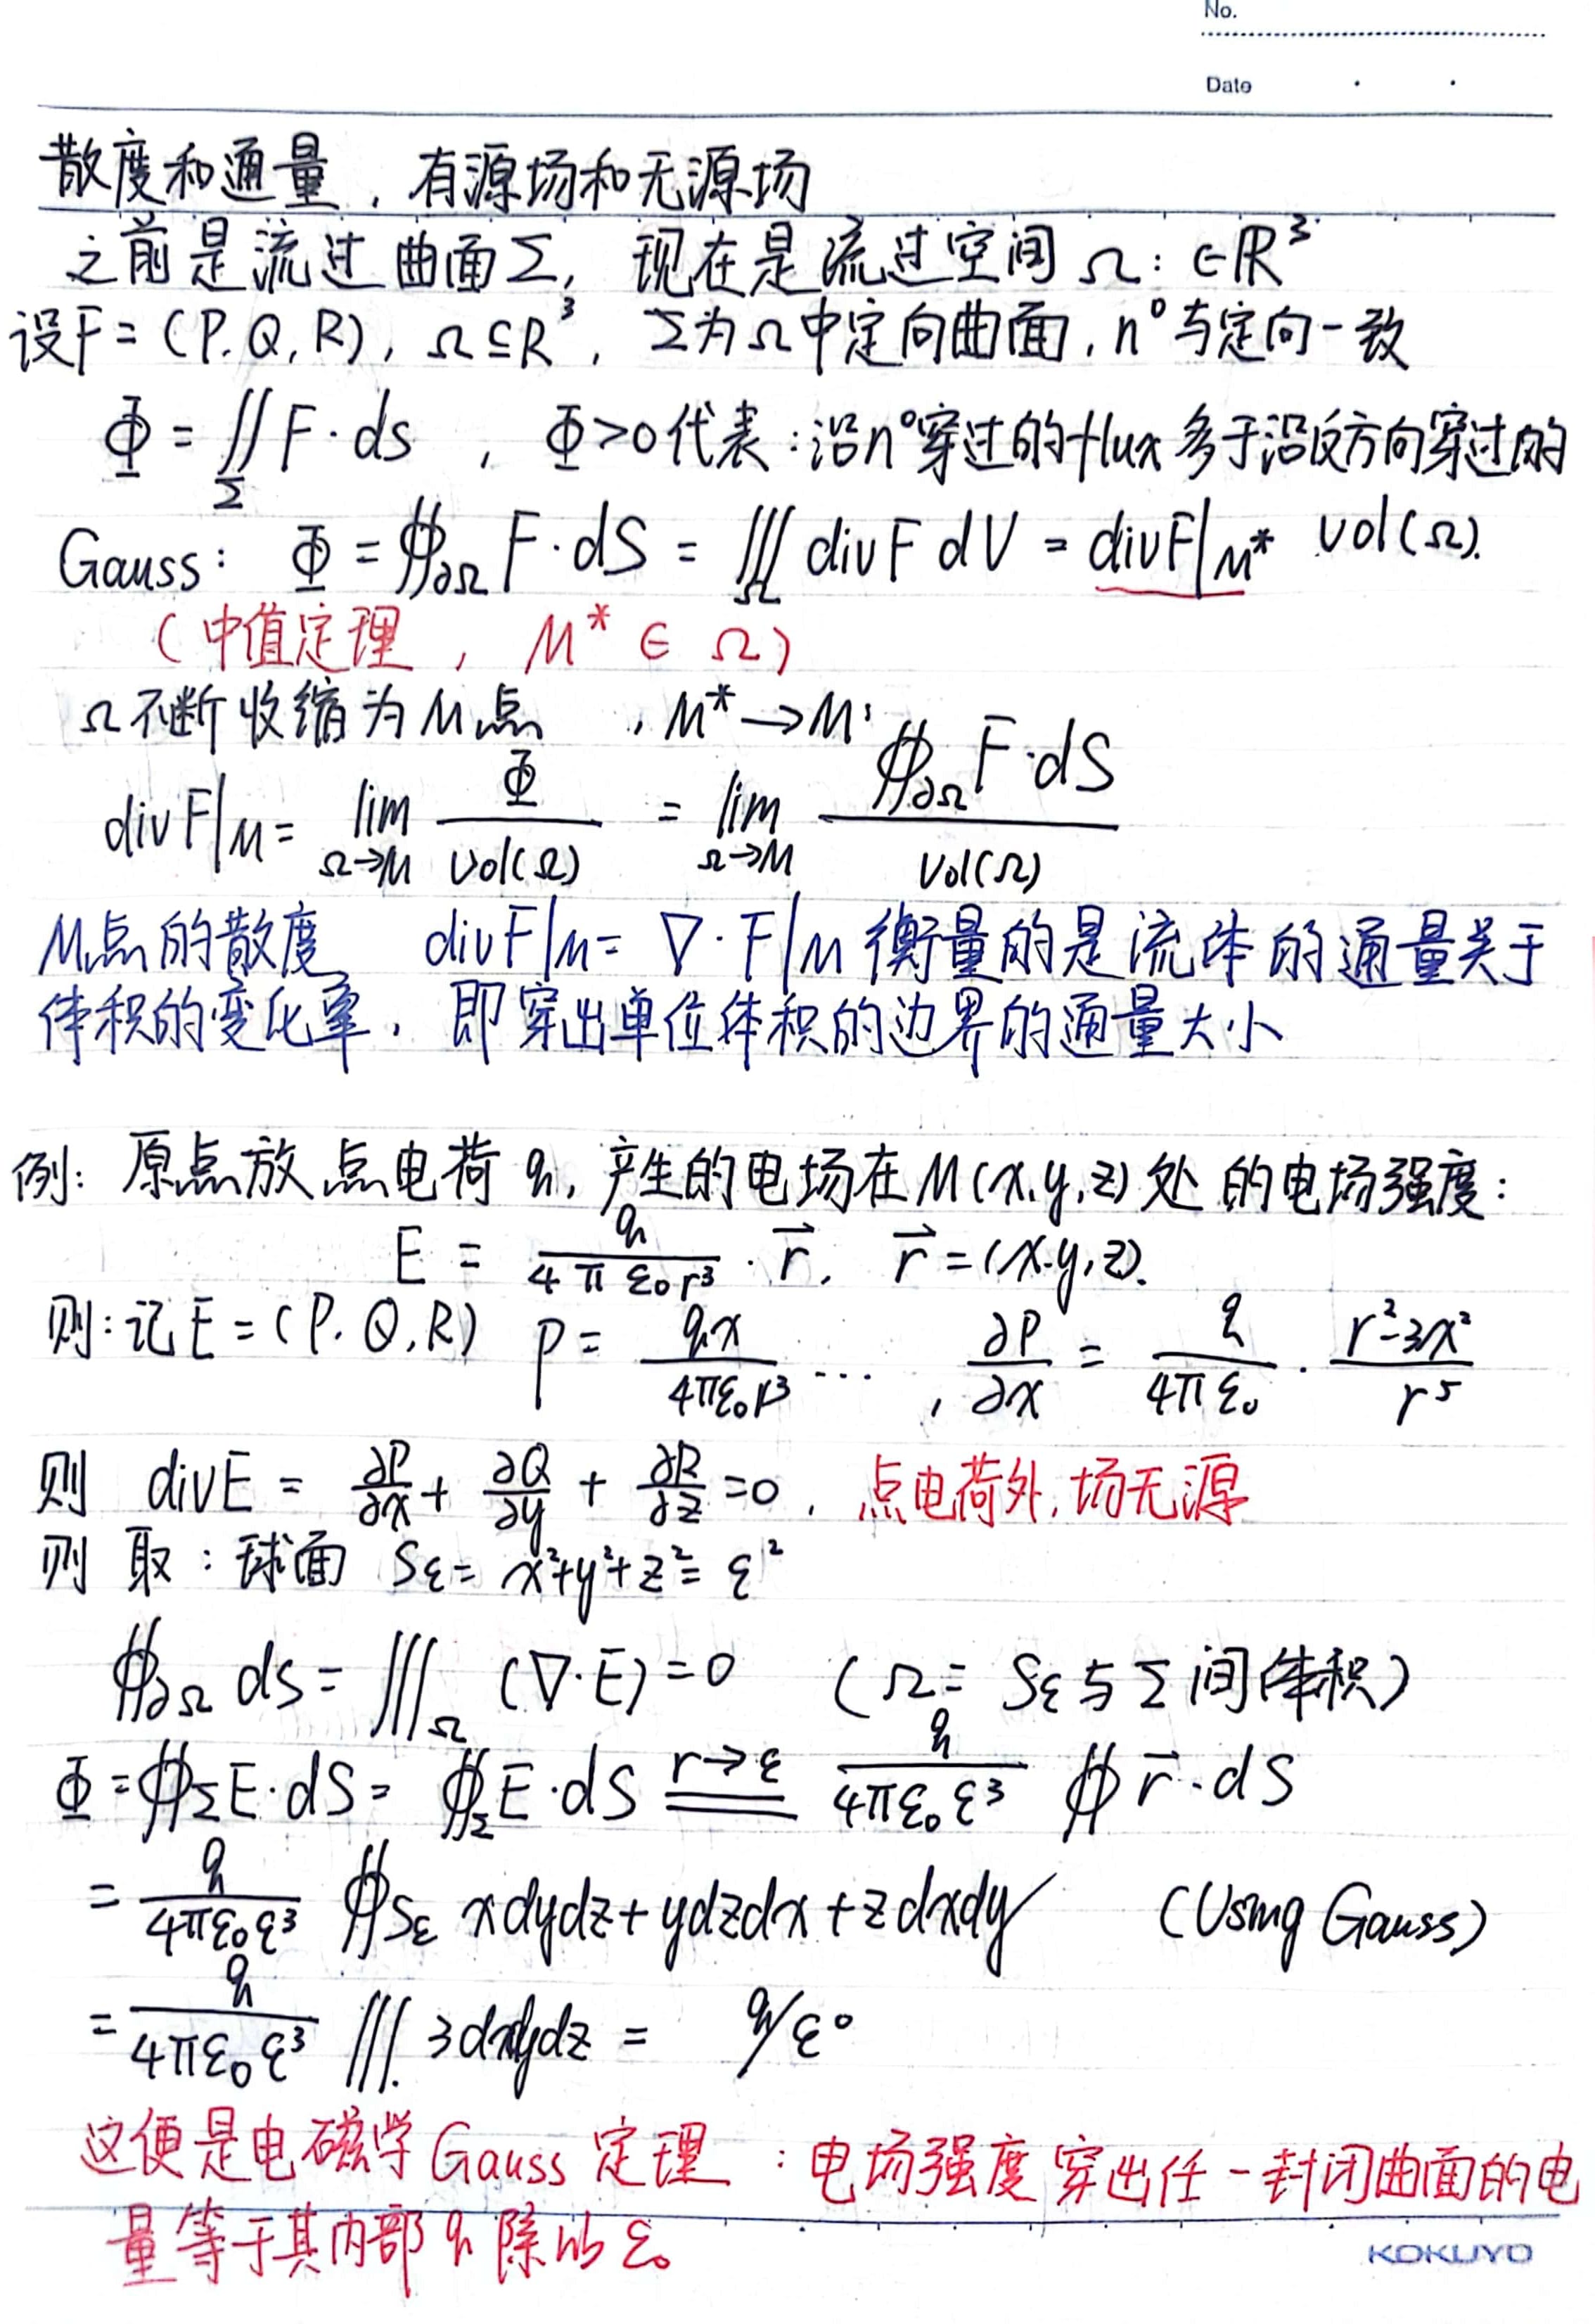 No.
Date
散度和通量，有源场和无源场
之前是流过曲面Σ，现在是流过空间Ω：∈ℝ³
设F=(P,Q,R)，Ω⊆R³，Σ为Ω中定向曲面，n⁰与定向一致
Φ=∬_Σ F·ds ，Φ>0代表：沿n⁰穿过的flux多于沿反方向穿过的
Gauss：Φ=∯_∂Ω F·dS=∭_Ω divF dV=divF|_M* vol(Ω).
（中值定理，M*∈Ω）
Ω不断收缩为M点，M*→M：
divF|_M=lim_{Ω→M} Φ/Vol(Ω)=lim_{Ω→M} ∯_∂Ω F·dS/Vol(Ω)
M点的散度 divF|_M=∇·F|_M衡量的是流体的通量关于
体积的变化率，即穿出单位体积的边界的通量大小
例：原点放点电荷q，产生的电场在M(x,y,z)处的电场强度：
E=q/(4πε₀r³)·r⃗，r⃗=(x,y,z).
则：记E=(P,Q,R) P=qx/(4πε₀r³)…，∂P/∂x=q/(4πε₀)·(r²-3x²)/r⁵
则 divE=∂P/∂x+∂Q/∂y+∂R/∂z=0，点电荷外，场无源
则 取：球面 Sε=x²+y²+z²=ε²
∯_∂Ω ds=∭_Ω (∇·E)=0 （Ω=Sε与Σ间体积）
Φ=∯_Σ E·dS=∯_Σ E·dS ═(r→ε)═ q/(4πε₀ε³) ∯ r⃗·dS
=q/(4πε₀ε³) ∯_Sε xdydz+ydzdx+zdxdy (Using Gauss)
=q/(4πε₀ε³) ∭ 3dxdydz= q/ε⁰
这便是电磁学Gauss定理：电场强度穿出任一封闭曲面的电
量等于其内部q除以ε₀
KOKUYO